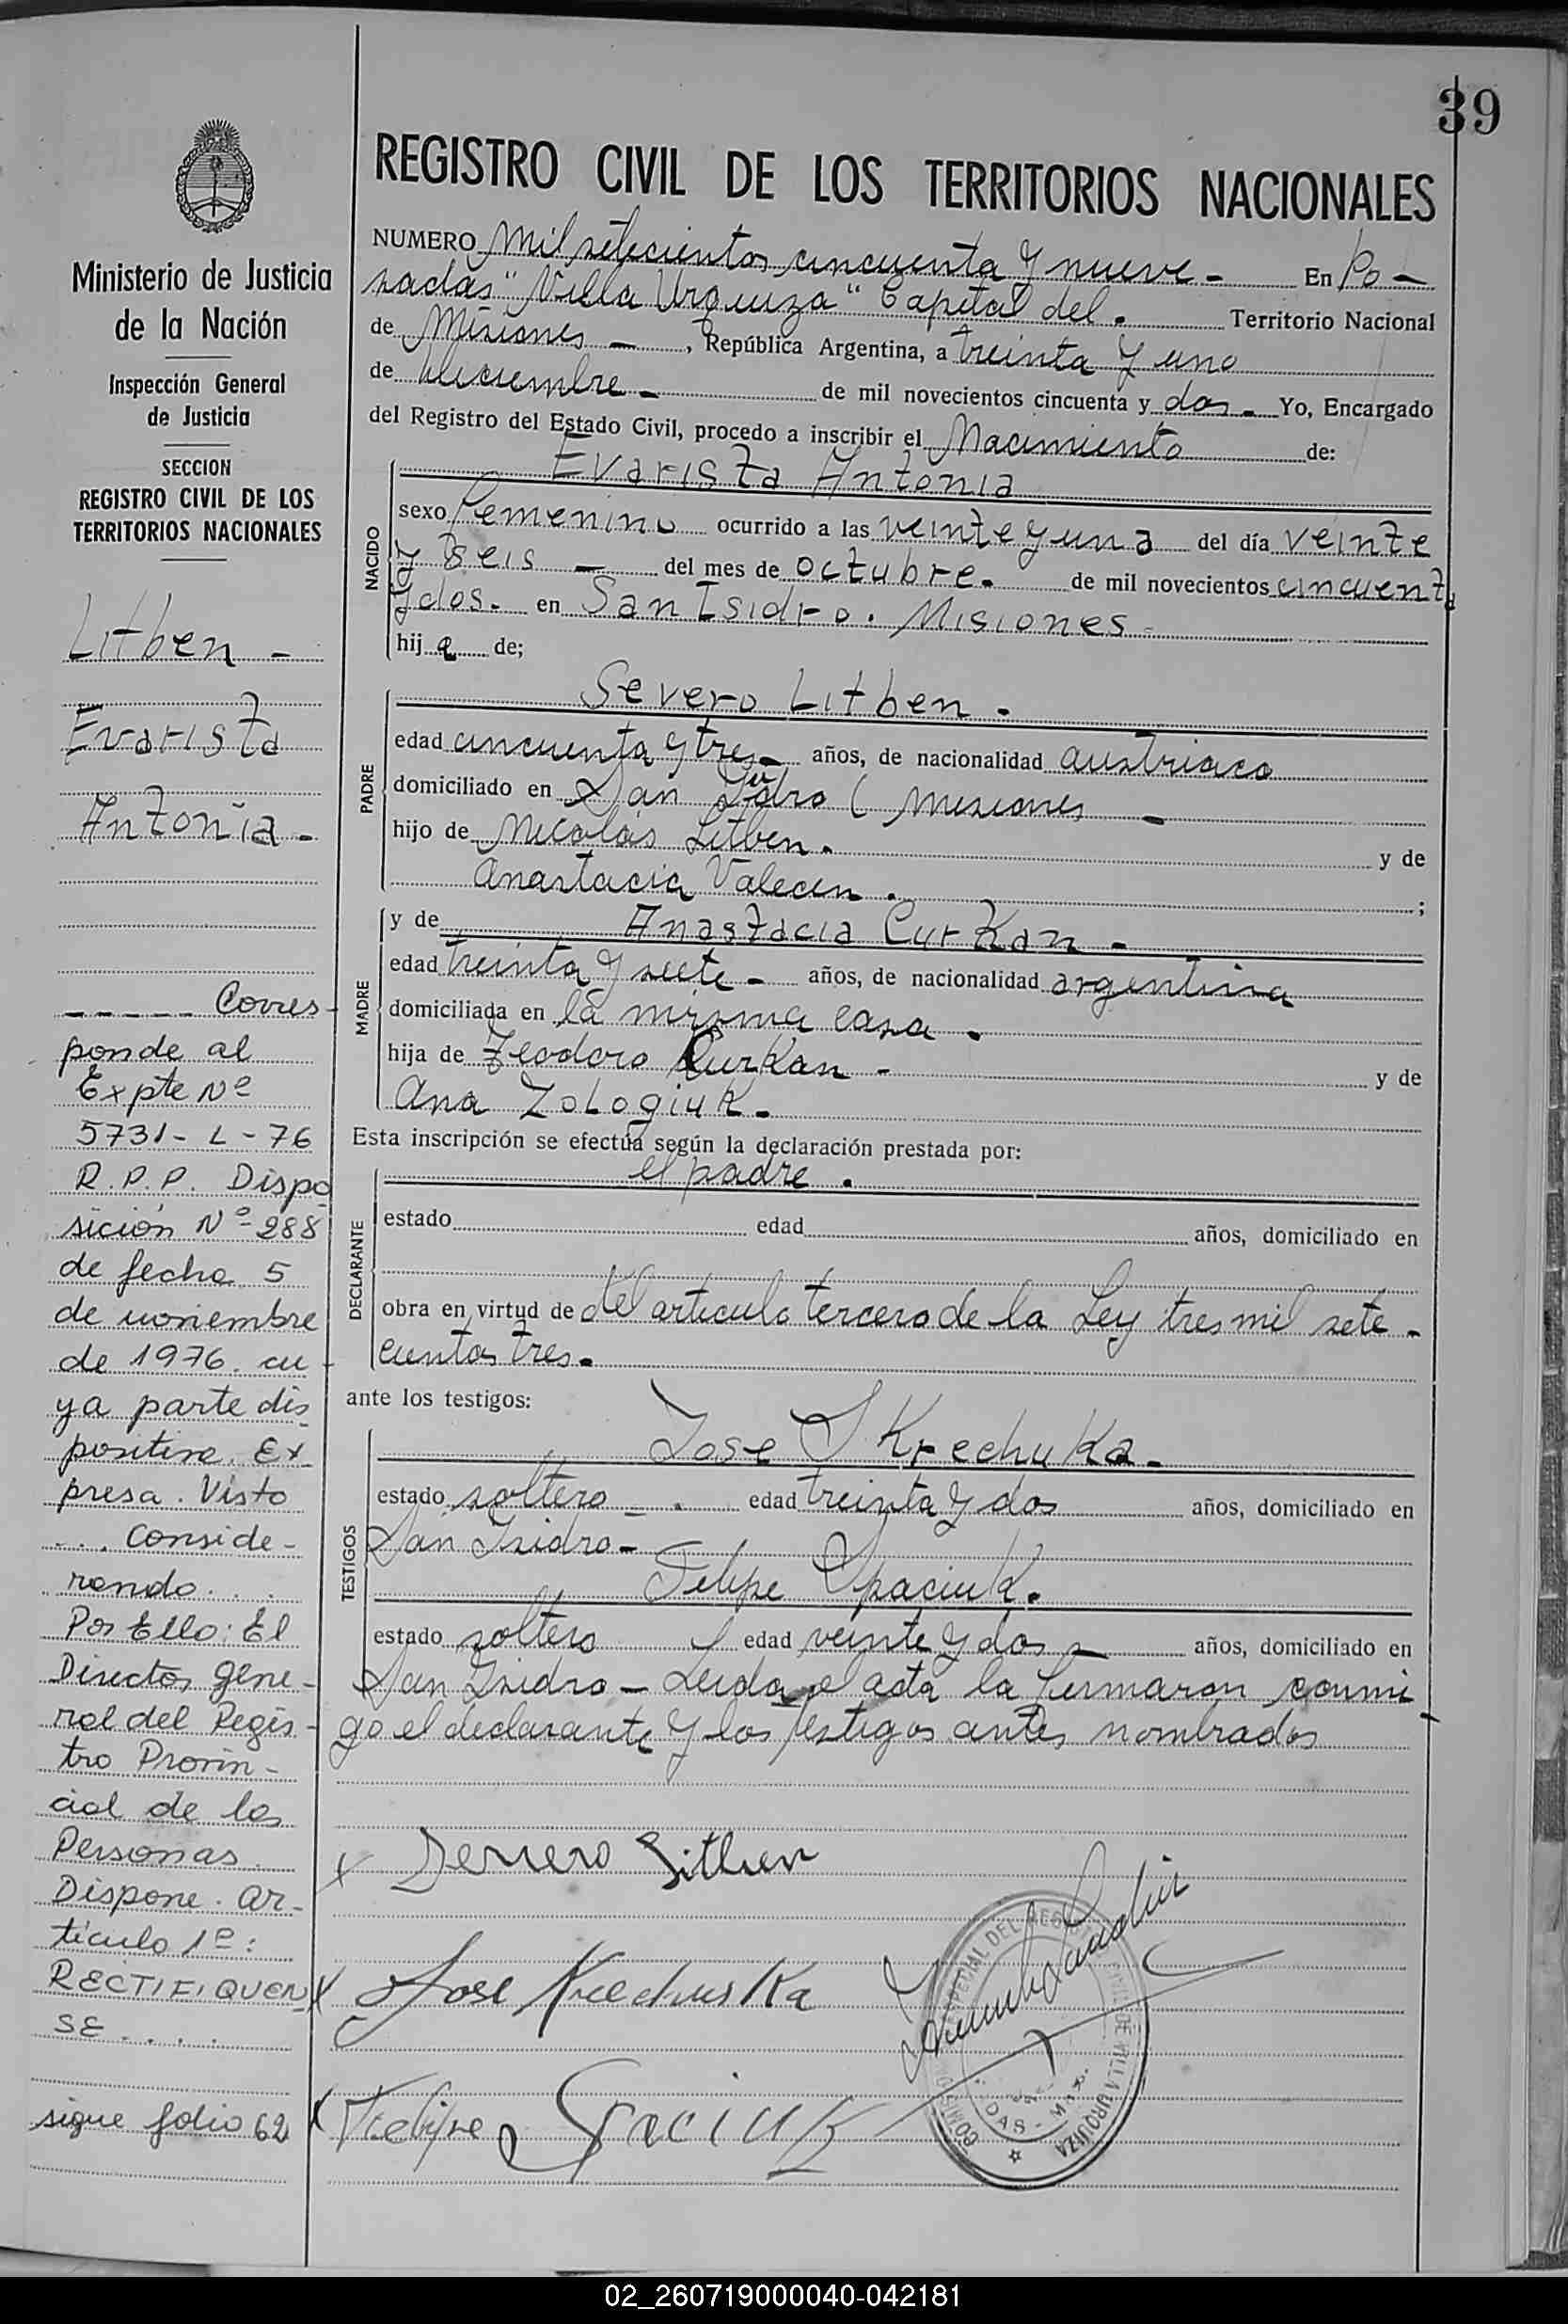 39
REGISTRO CIVIL DE LOS TERRITORIOS NACIONALES
NUMERO Mil setecientos cincuenta y nueve - En Po -
sadas "Villa Urquiza" Capital del. Territorio Nacional
de Misiones - , República Argentina, a treinta y uno
de diciembre - de mil novecientos cincuenta y dos - Yo, Encargado
del Registro del Estado Civil, procedo a inscribir el Nacimiento de:
NACIDO
Evarista Antonia
sexo femenino ocurrido a las veinte y una del día veinte
y seis - del mes de octubre. de mil novecientos cincuenta
y dos. en San Isidro. Misiones -
hij a de;
PADRE
Severo Litben.
edad cincuenta y tres - años, de nacionalidad austriaco
domiciliado en San Isidro ( Misiones -
hijo de Nicolás Litben. y de
Anastacia Valecen. ;
MADRE
y de Anastacia Curkan -
edad treinta y siete - años, de nacionalidad argentina
domiciliada en la misma casa.
hija de Teodoro Curkan - y de
Ana Zologiuk.
Esta inscripción se efectúa según la declaración prestada por:
DECLARANTE
el padre.
estado edad años, domiciliado en
obra en virtud de del articulo tercero de la Ley tres mil sete -
cientos tres.
ante los testigos:
TESTIGOS
Jose S Krechuka.
estado soltero - . edad treinta y dos años, domiciliado en
San Isidro -
Felipe Spaciuk.
estado soltero edad veinte y dos - años, domiciliado en
San Isidro - Leida el acta la firmaron conmi
go el declarante y los testigos antes nombrados
x Severo Litben
x Jose Krechuska
x Felipe Spaciuk
DEL REGISTRO CIVIL DE VILLA URQUIZA
Ministerio de Justicia
de la Nación
Inspección General
de Justicia
SECCION
REGISTRO CIVIL DE LOS
TERRITORIOS NACIONALES
Litben -
Evarista
Antonia -
----- Corres -
ponde al
Expte Nº
5731 - L - 76
R.P.P. Dispo
sición Nº 288
de fecha 5
de noviembre
de 1976. cu -
ya parte dis
positiva. Ex -
presa. Visto
... Conside -
rando ...
Por Ello: El
Director gene -
ral del Regis -
tro Provin -
cial de las
Personas.
Dispone. Ar -
tículo 1º:
RECTIFIQUEN
SE ....
sigue folio 62
02_260719000040-042181